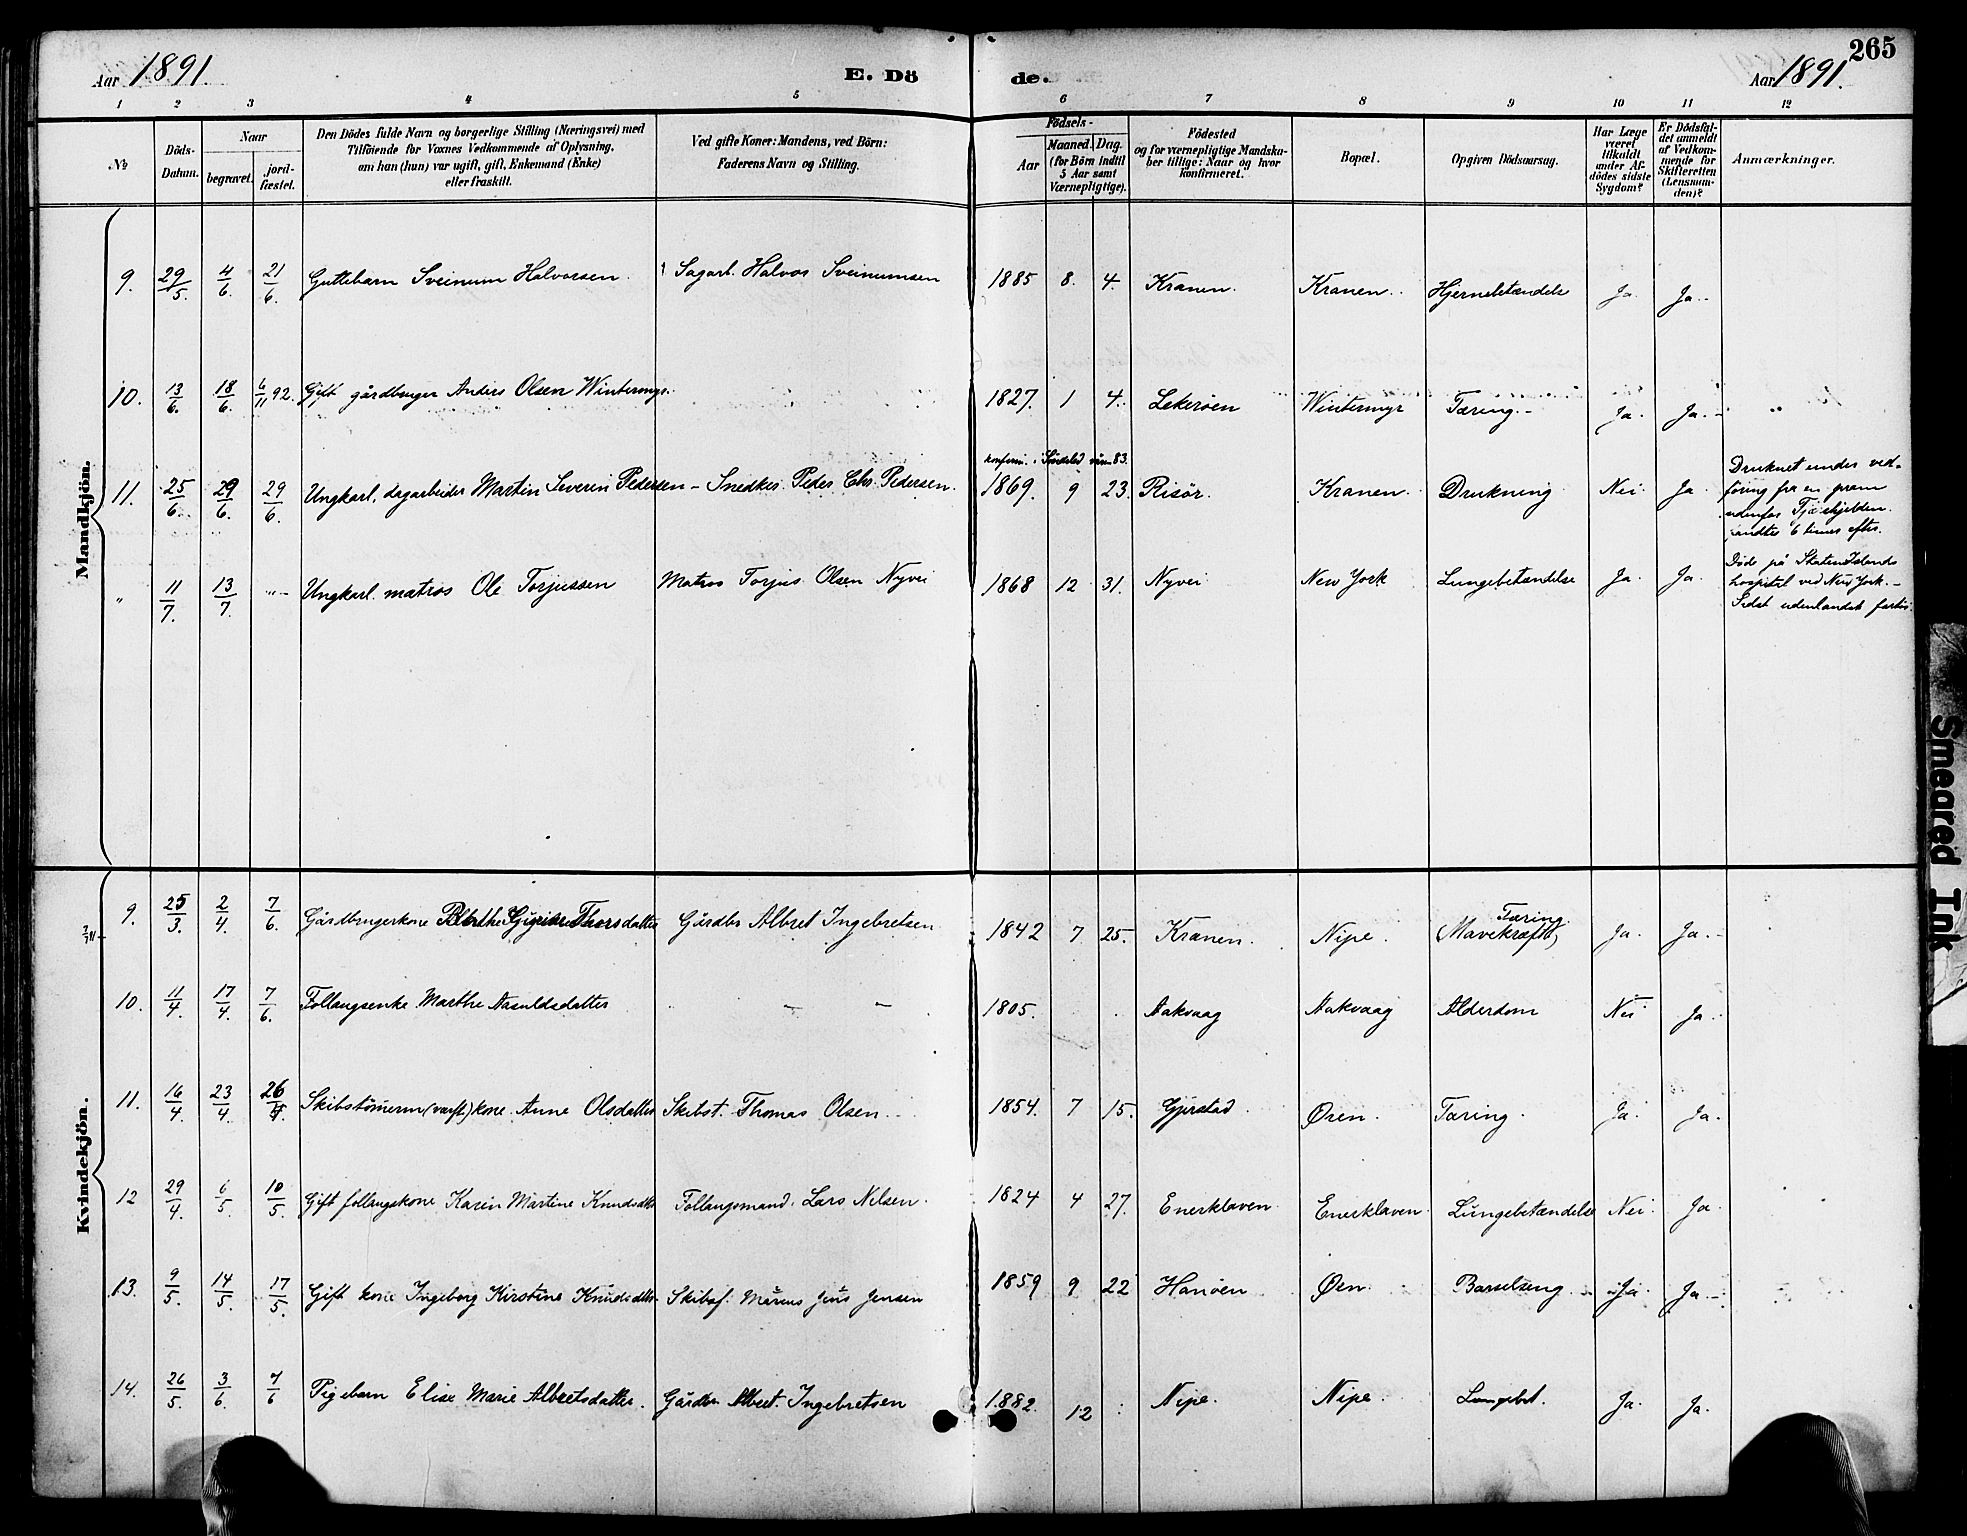 Aar 1891. E. Dö de. Aar 1891. 265
1 2 3 4 5 6 7 8 9 10 11 12
No
Döds-Datum.
Naar
begravet. jord-fæstet.
Den Dödes fulde Navn og borgerlige Stilling (Næringsvei) med
Tilföiende for Voxnes Vedkommende af Oplysning,
om han (hun) var ugift, gift, Enkemand (Enke)
eller fraskilt.
Ved gifte Koner: Mandens, ved Börn:
Faderens Navn og Stilling.
Födsels-
Aar Maaned. Dag.
(for Börn indtil
5 Aar samt
Værnepligtige).
Födested
og for værnepligtige Mandska-
ber tillige: Naar og hvor
konfirmeret.
Bopæl.
Opgiven Dödsaarsag.
Har Læge
været
tilkaldt
under Af-
dödes sidste
Sygdom?
Er Dödsfal-
det anmeldt
af Vedkom-
mende for
Skifteretten
(Lensman-
den)?
Anmærkninger.
Mandkjön.
9. 29/5. 4/6. 21/6. Guttebarn Sveinum Halvorsen. Sagarb. Halvor Sveinumsen 1885 8. 4. Kranen. Kranen. Hjernebetændelse Ja. Ja.
10. 13/6. 18/6. 6/11 92. Gift gårdbruger Anders Olsen Wintermyr. 1827. 1 4. Lekerøen Wintermyr Tæring. Ja. Ja. "
konfirm. i Søndeled 83.
11. 25/6 29/6. 29/6. Ungkarl, dagarbeider Martin Severin Pedersen – Snedker Peder Chr. Pedersen. 1869. 9 23. Risör. Kranen. Drukning Nei Ja.
Druknet under ved-
føring fra en pram
udenfor
6 timer efter.
" 11/7. 13/7. "– Ungkarl. matros Ole Torjussen Matros Torjus Olsen Nyvei 1868 12 31. Nyvei New York Lungebetændelse Ja. Ja.
Død på Staten Islands
hospital ved New York. –
Sidst udenlandsk fartøi.
Kvindekjön.
9. 25/3. 2/4. 7/6. Gårdbrugerkone Thorsdatter Gårdbr Albret Ingebretsen 1842 7 25. Kranen. Nipe. Tæring (Mavekræft) Ja. Ja.
10. 11/4. 17/4. 7/6. Follaugsenke Marthe Aasuldsdatter – – 1805. Aakvaag Aakvaag Alderdom Nei Ja.
11. 16/4 23/4. 26/4. Skibstömerm (værft) kone. Anne Olsdatter Skibst. Thomas Olsen. 1854. 7 15. Gjerstad. Øren. Tæring. Ja. Ja.
12 29/4. 6/5. 10/5. Gift follaugskone Karen Martine Knudsdtr Follaugsmand. Lars Nilsen. 1824 4 27. Enerklaven Enerklaven. Lungebetændelse Nei. Ja.
13. 9/5. 14/5. 17/5. Gift kone Ingeborg Kirstine Knudsdtr. Skibsf. Marius Jens Jensen 1859 9 22 Hanöen Øen. Barselseng Ja. Ja.
14. 26/5. 3/6. 7/6 Pigebarn Elise Marie Albretsdatter. Gårdbr. Albret. Ingebretsen 1882. 12 Nipe. Nipe. Lungebet. Ja. Ja.
Smeared Ink